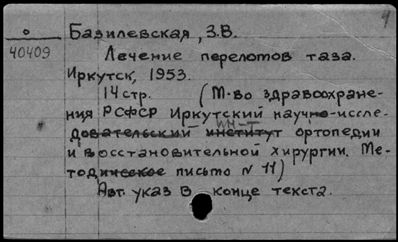 9
о Базилевская, З.В.
40409
Лечение перелотов таза.
Иркутск, 1953.
14 стр. (М-во здравоохране-
ния РСФСР Иркутский научно-иссле-
ин-т
довательский институт ортопедии
и восстановительной хирургии. Ме-
тодическое письмо N 11)
Авт. указ в конце текста.